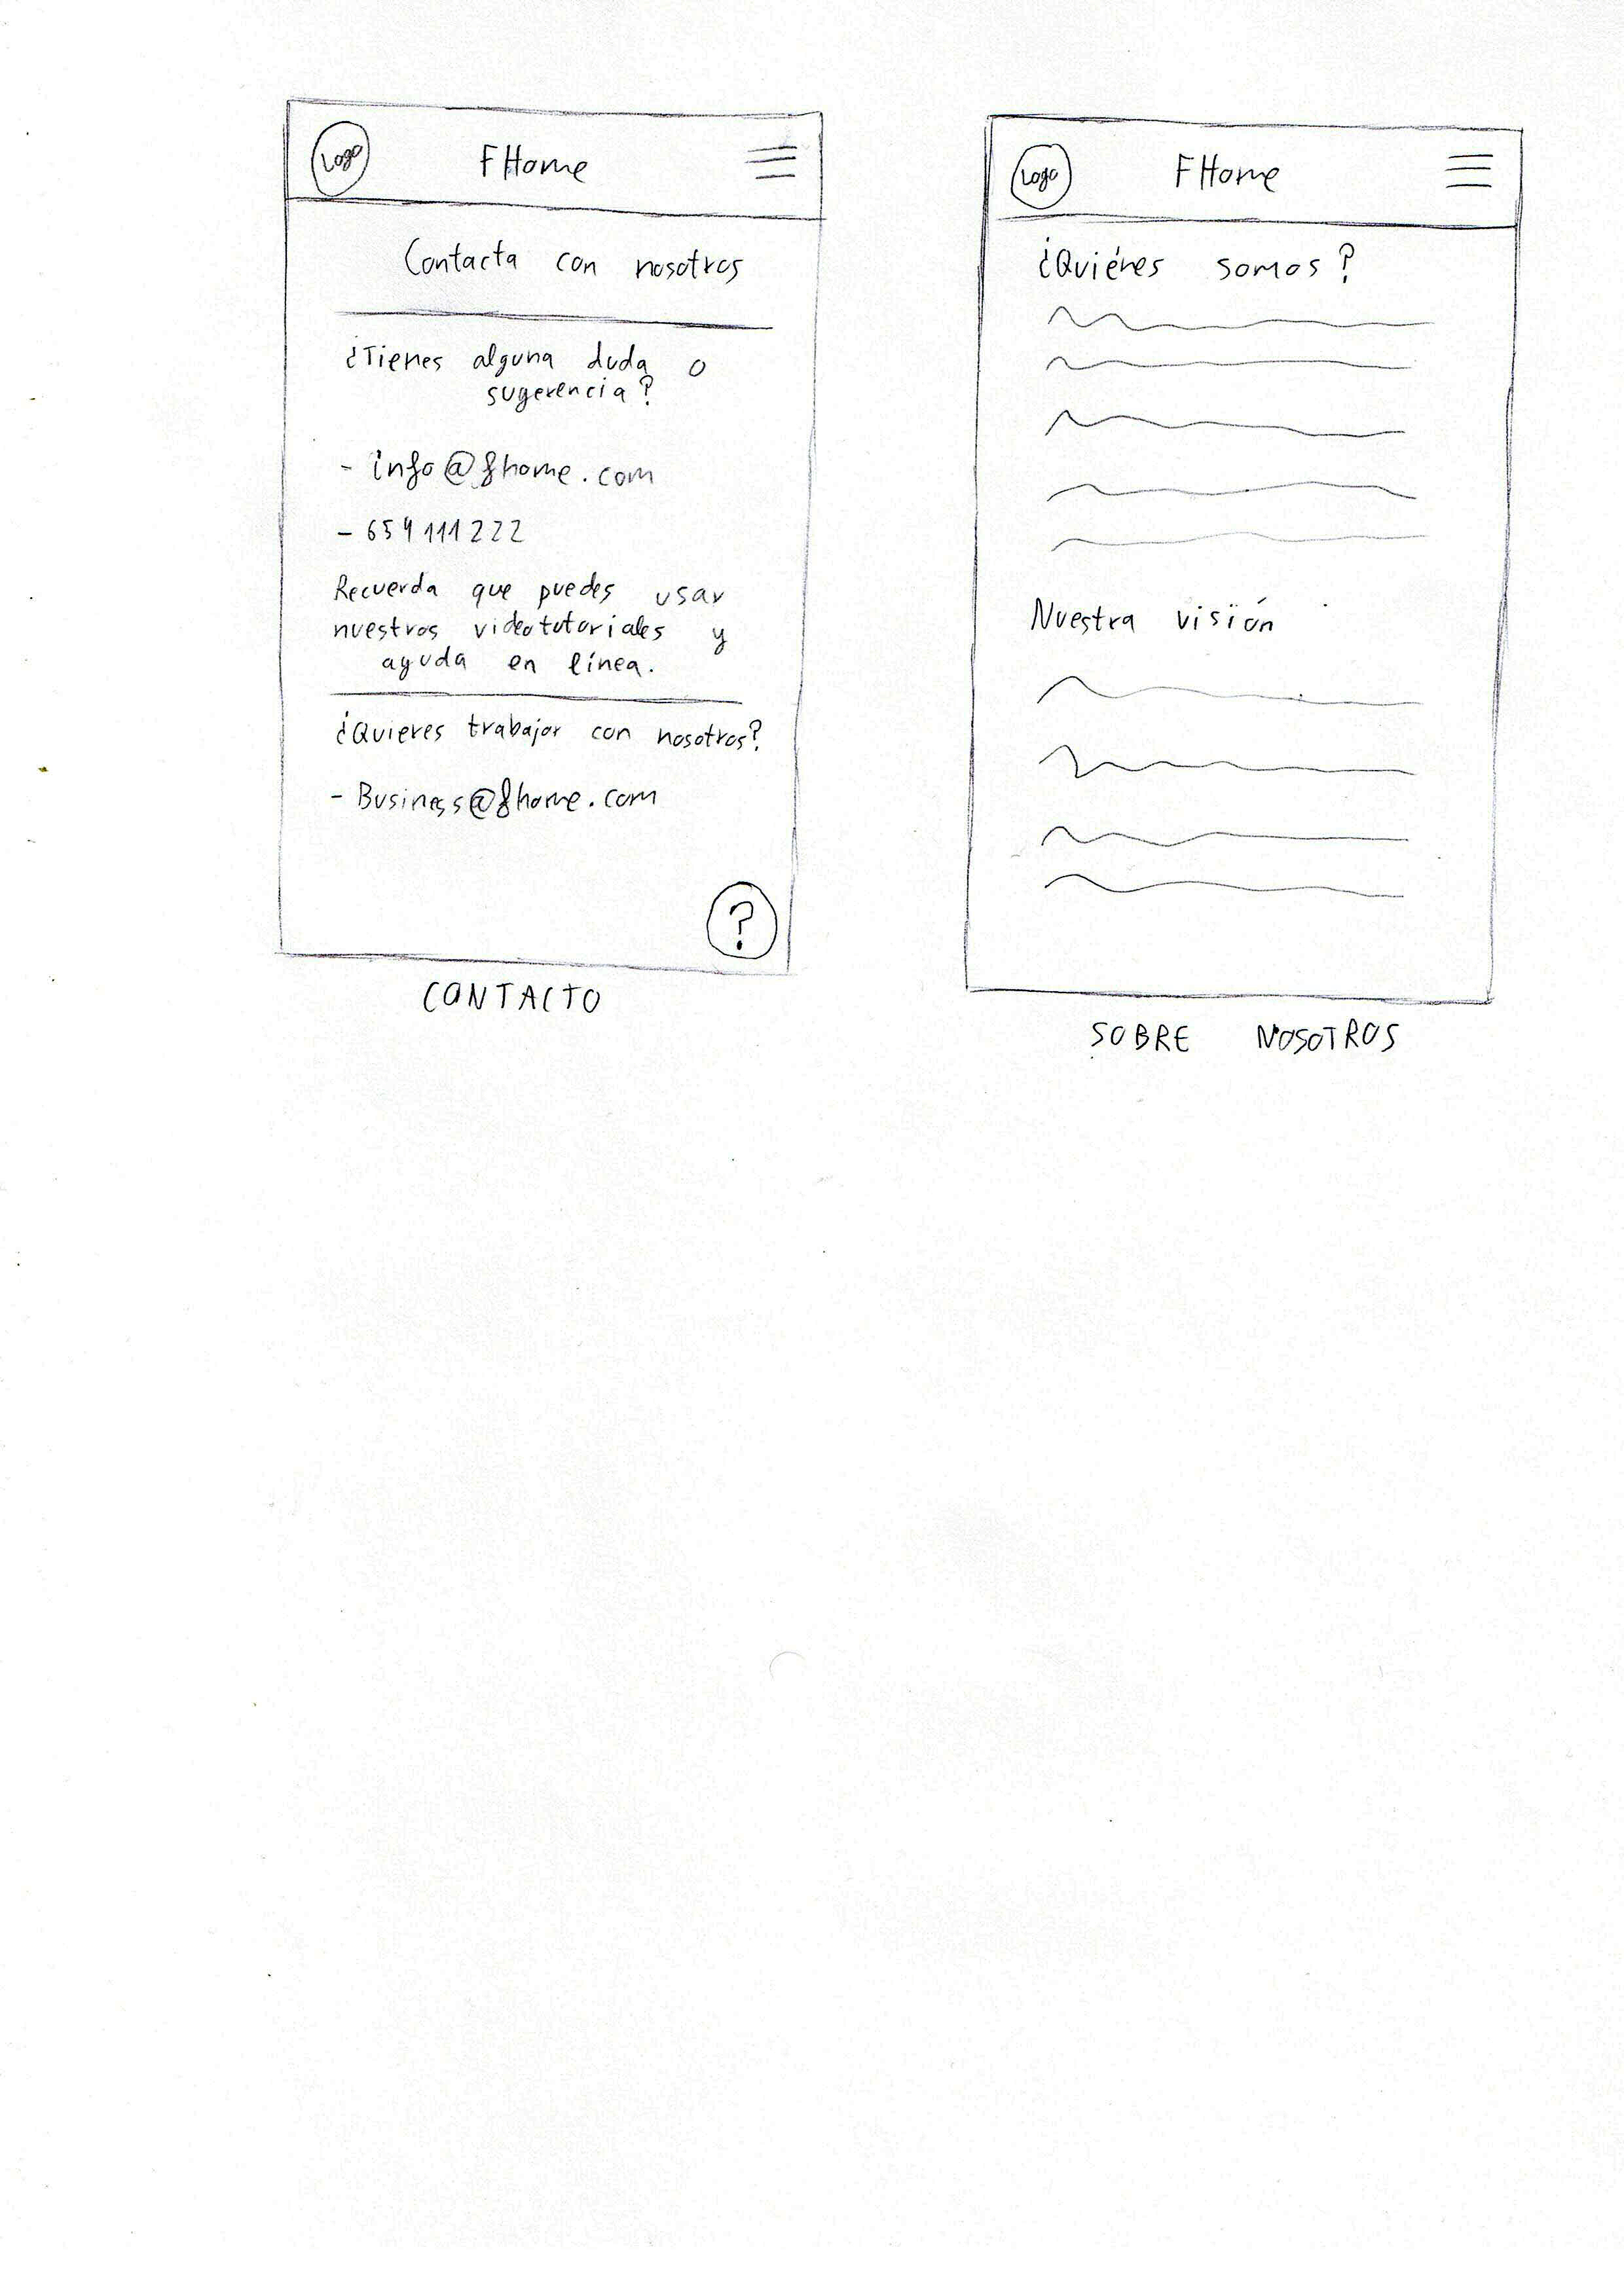 Logo
FHome
Contacta con nosotros
¿Tienes alguna duda o
sugerencia?
- info@fhome.com
- 659111222
Recuerda que puedes usar
nuestros videotutoriales y
ayuda en línea.
¿Quieres trabajar con nosotros?
- Business@fhome.com
?
CONTACTO
Logo
FHome
¿Quiénes somos?
Nuestra visión
SOBRE NOSOTROS